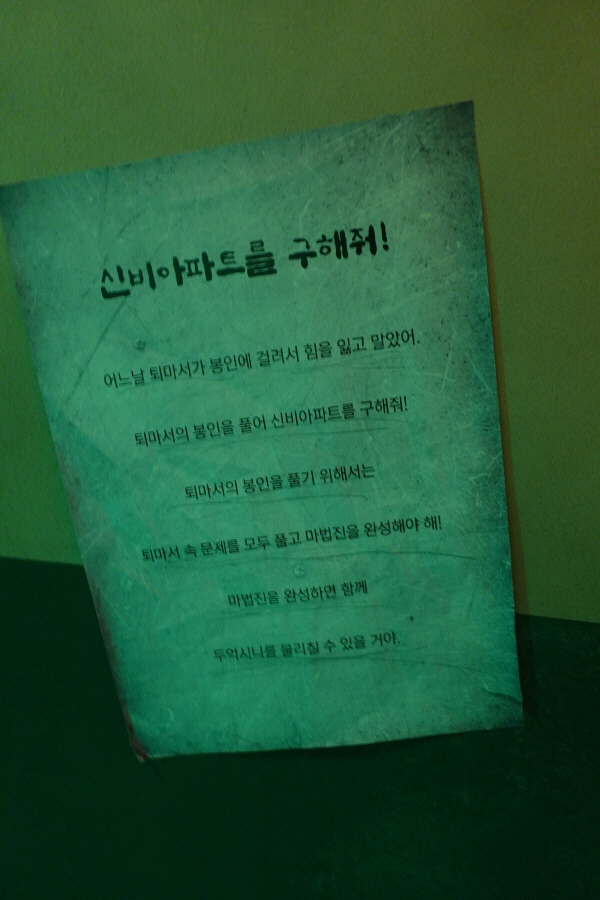 신비아파트를 구해줘!
어느날 퇴마서가 봉인에 걸려서 힘을 잃고 말았어.
퇴마서의 봉인을 풀어 신비아파트를 구해줘!
퇴마서의 봉인을 풀기 위해서는
퇴마서 속 문제를 모두 풀고 마법진을 완성해야 해!
마법진을 완성하면 함께
두억시니를 물리칠 수 있을 거야.